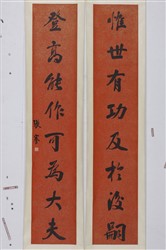 惟世有功及於後嗣
登高能作可為大夫
張謇